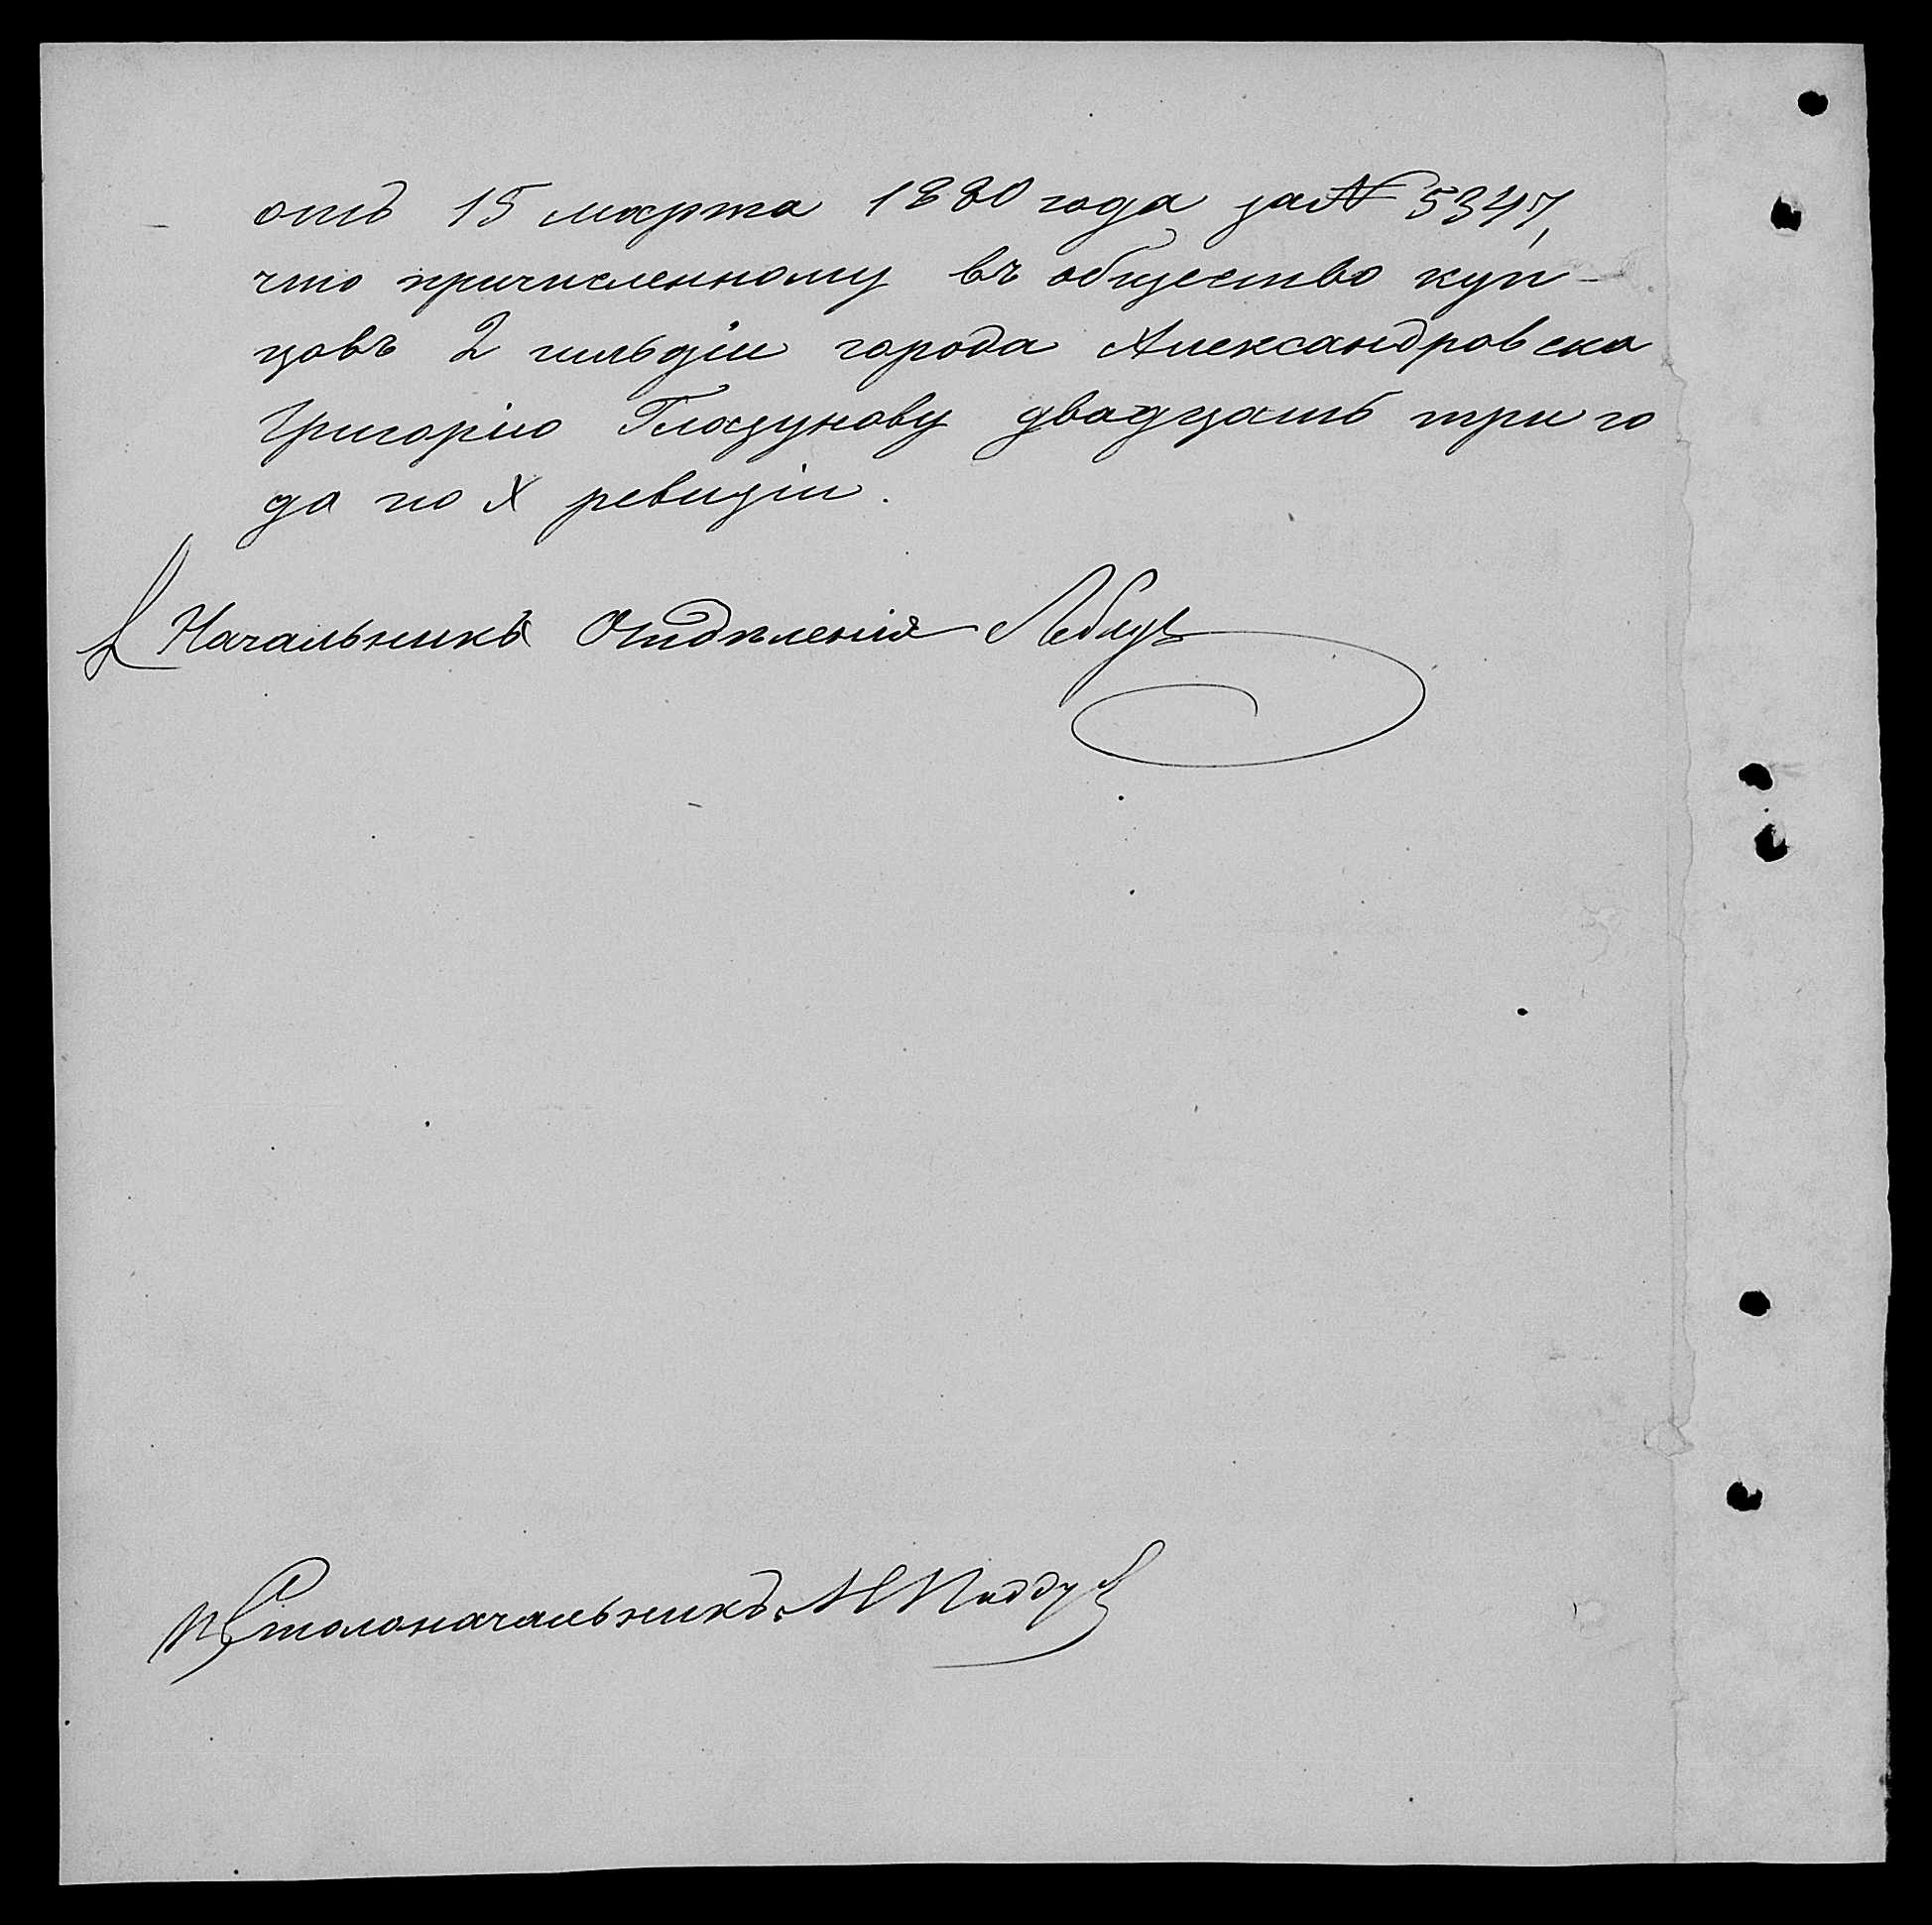 отъ 15 марта 1880 года за № 5347,
что причисленному въ общество куп-
цовъ 2 гильдіи города Александровска
Григорію Глазунову двадцать три го
да по X ревизіи.
Начальникъ Отдѣленія
Столоначальникъ